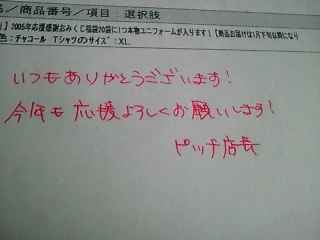 名／商品番号／項目 選択肢
】2005年応援感謝おみくじ福袋20袋に1つ本物ユニフォームが入ります！【商品お届けは1月下旬以降になり
色：チャコール Tシャツのサイズ：XL
いつもありがとうございます！
今年も応援よろしくお願いします！
ピッチ店長